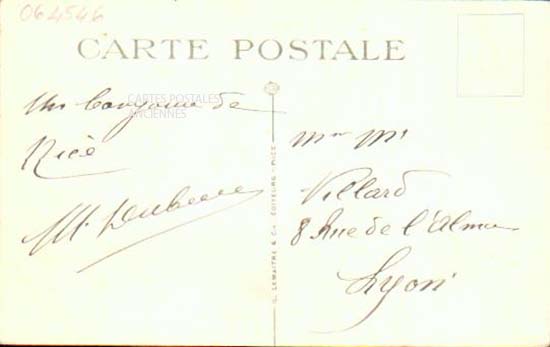 064546
CARTE POSTALE
CARTES POSTALES
ANCIENNES
Un bonjour de
Nice
M.
G. LEMAITRE & Cie, ÉDITEURS - NICE
Mme Mr
Villard
8 Rue de l'Alma
Lyon